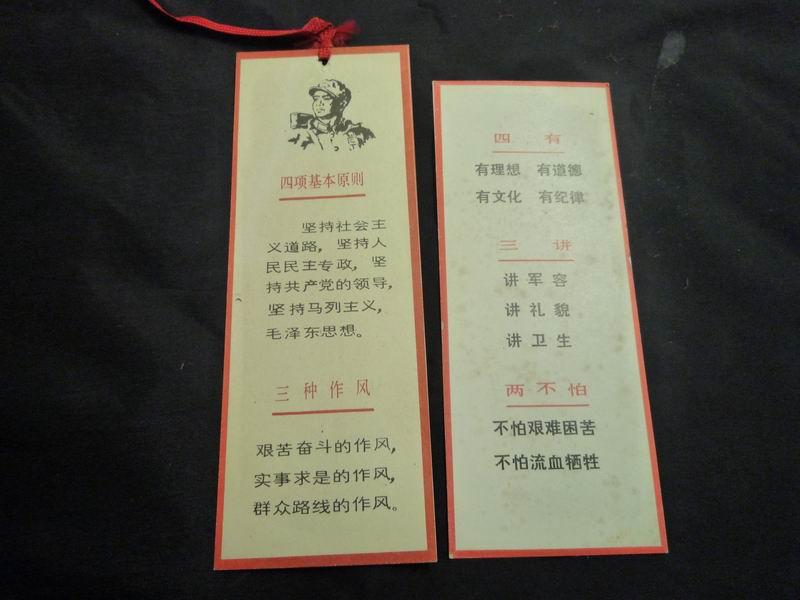 四项基本原则
坚持社会主
义道路，坚持人
民民主专政，坚
持共产党的领导，
坚持马列主义，
毛泽东思想。
三种作风
艰苦奋斗的作风，
实事求是的作风，
群众路线的作风。
四 有
有理想 有道德
有文化 有纪律
三 讲
讲军容
讲礼貌
讲卫生
两不怕
不怕艰难困苦
不怕流血牺牲